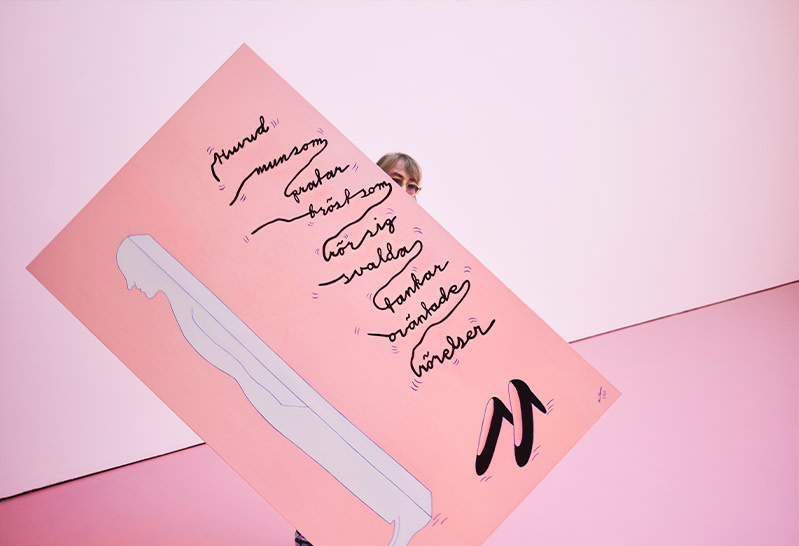 Huvud
munsom
pratar
bröst som
rör sig
svalda
tankar
oväntade
rörelser